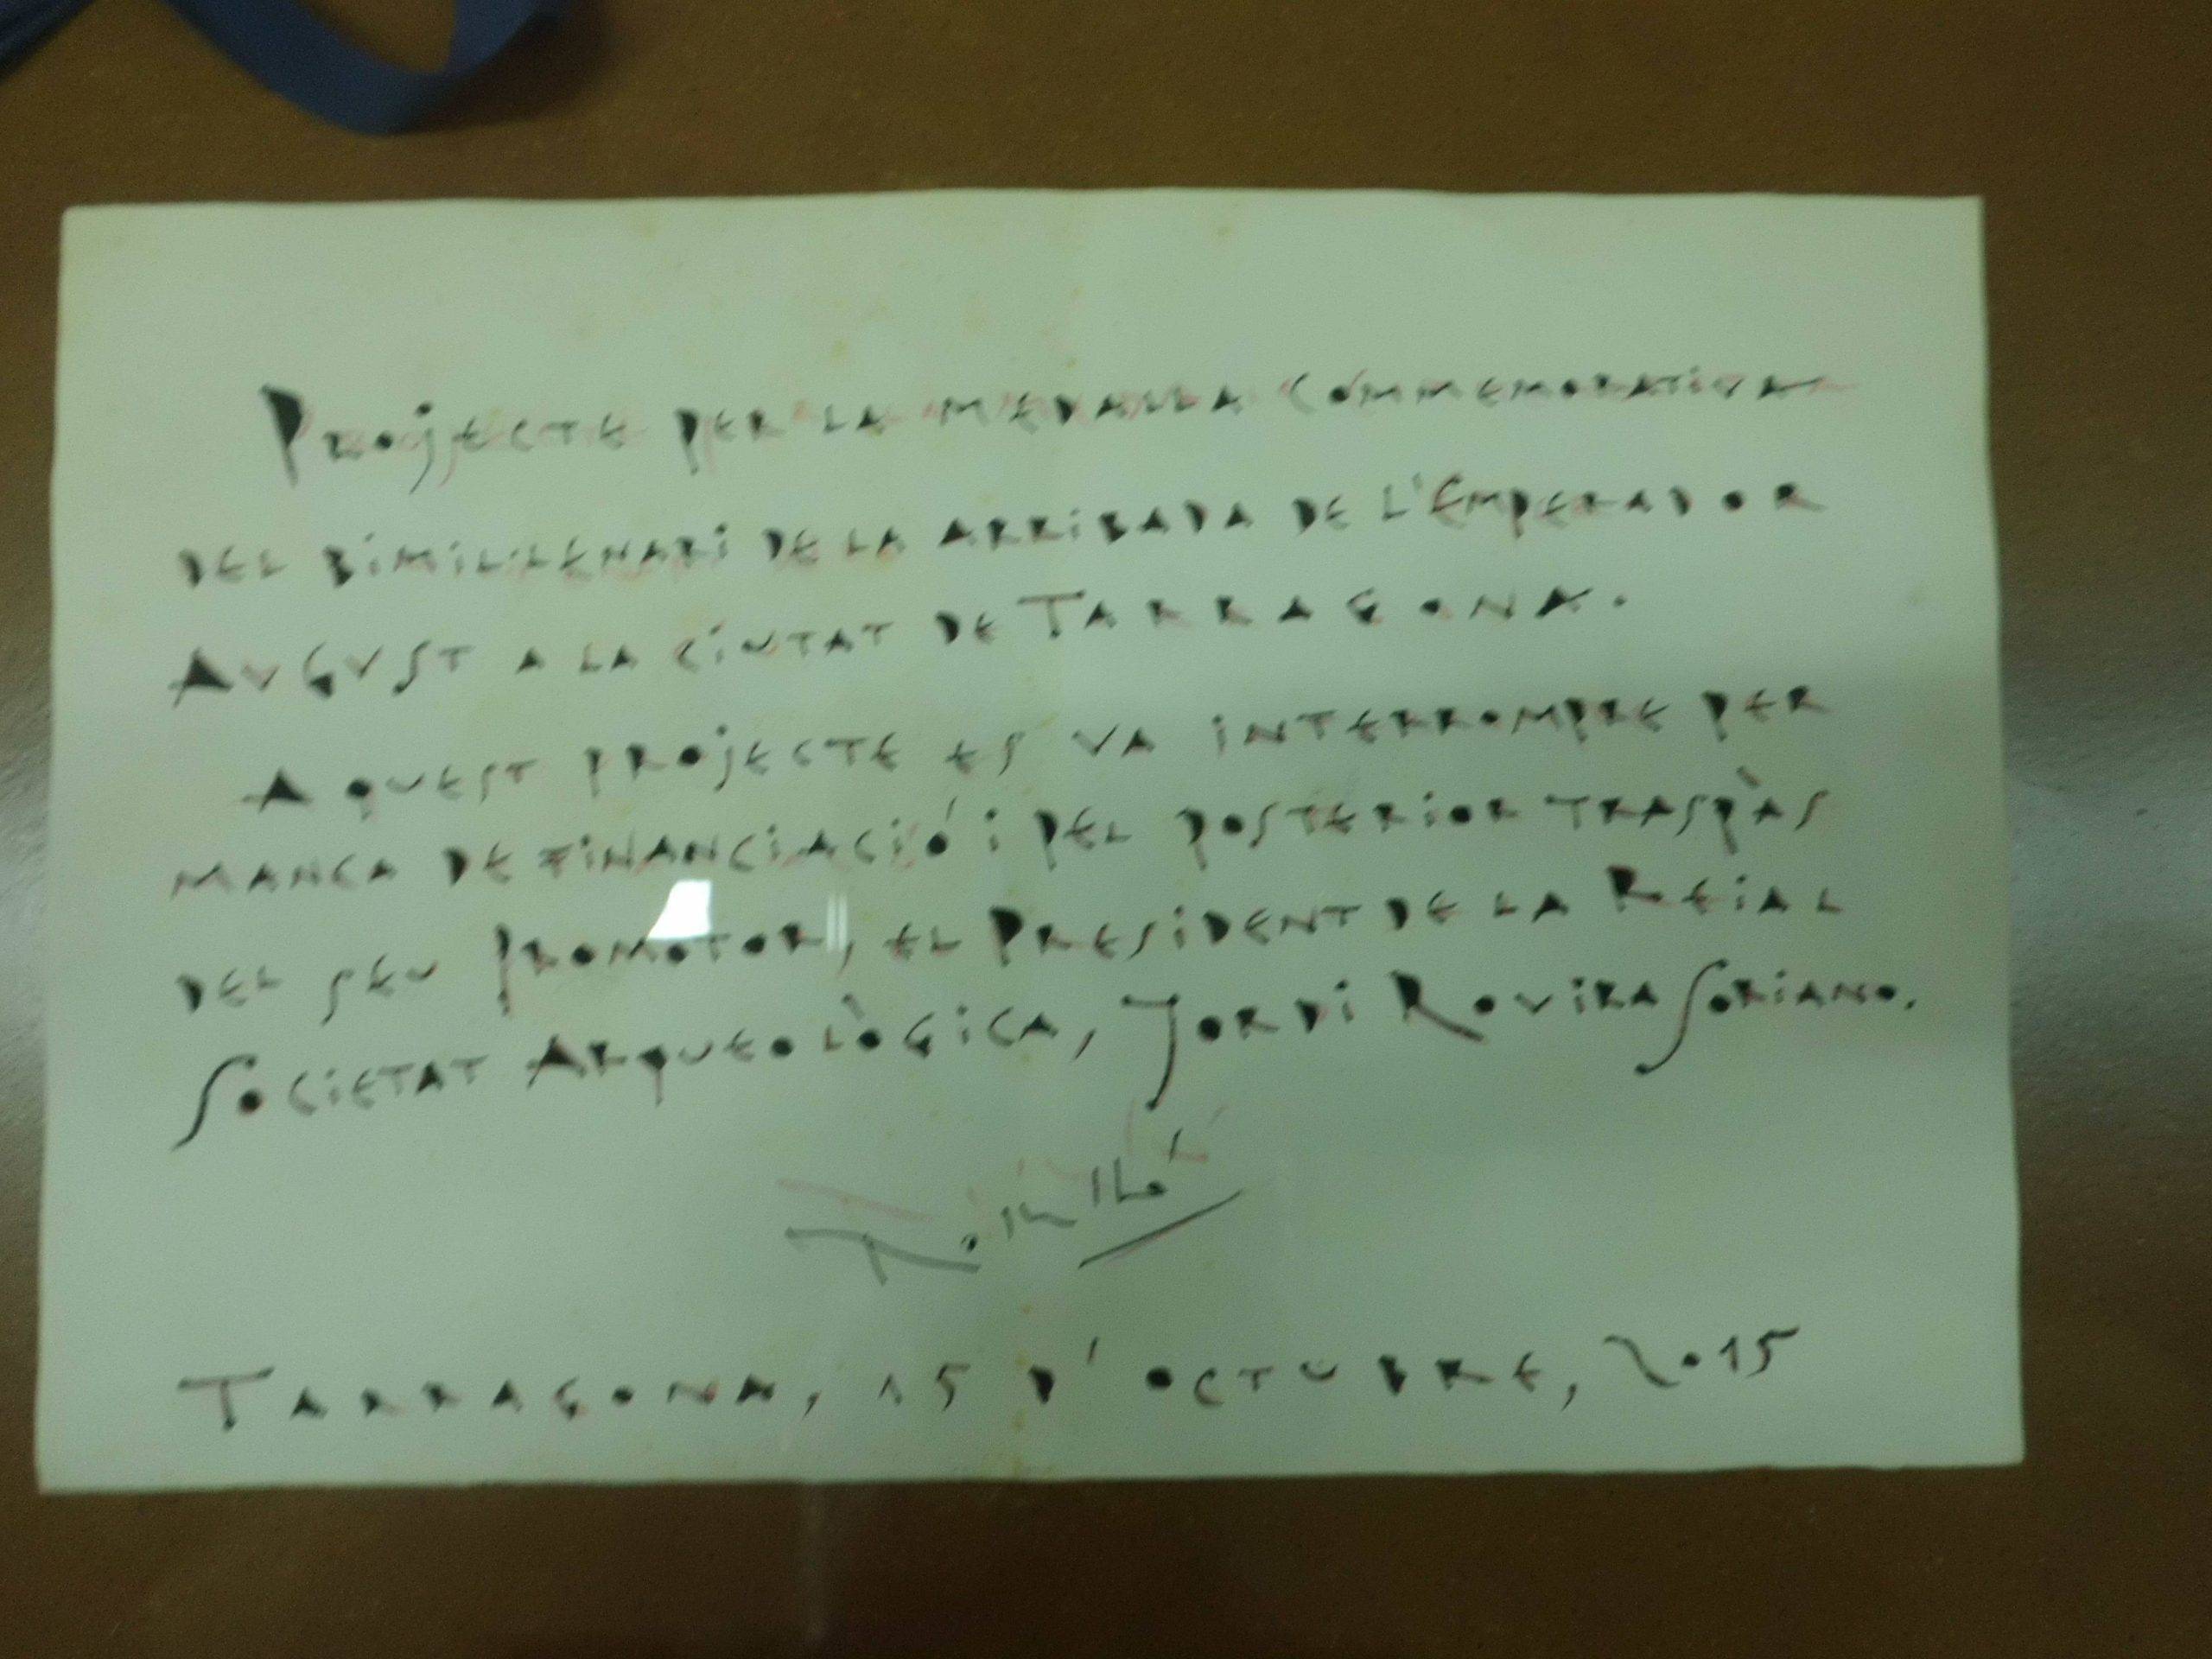 Projecte per la medalla commemorativa
del bimil·lenari de la arribada de l'Emperador
Avgvst a la ciutat de Tarragona.
Aquest projecte es va interrompre per
manca de financiació i pel posterior traspàs
del seu promotor, el President de la Reial
Societat Arqueològica, Jordi Rovira Soriano.
Tarragona, 15 d'octubre, 2015